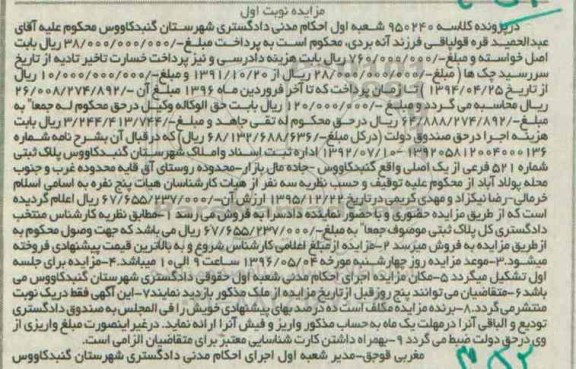 مزایده نوبت اول
درپرونده کلاسه ۹۵۰۲۴۰ شعبه اول احکام مدنی دادگستری شهرستان گنبدکاووس محکوم علیه آقای
عبدالحمید قره قولباقی فرزند آنه بردی، محکوم است به پرداخت مبلغ-/۳۸/۰۰۰/۰۰۰/۰۰۰ ریال بابت
اصل خواسته و مبلغ-/۷۶۰/۰۰۰/۰۰۰ ریال بابت هزینه دادرسی و نیز پرداخت خسارت تاخیر تادیه از تاریخ
سررسید چک ها ( مبلغ-/۲۸/۰۰۰/۰۰۰/۰۰۰ ریال از ۱۳۹۱/۱۰/۲۰ و مبلغ-/۱۰/۰۰۰/۰۰۰/۰۰۰ ریال
از تاریخ ۱۳۹۴/۰۴/۲۵ ) تا زمان پرداخت که تا آخر فروردین ماه ۱۳۹۶ مبلغ آن -/۲۶/۰۰۸/۲۷۴/۸۹۲
ریال محاسبه می گردد و مبلغ -/۱۲۰/۰۰۰/۰۰۰ ریال بابت حق الوکاله وکیل درحق محکوم له جمعا" به
مبلغ-/۶۴/۸۸۸/۲۷۴/۸۹۲ ریال درحق محکوم له تقی جاهد و مبلغ-/۳/۲۴۴/۴۱۳/۷۴۴ ریال بابت
هزینه اجرا درحق صندوق دولت (درکل مبلغ-/۶۸/۱۳۲/۶۸۸/۶۳۶ ریال) که درقبال آن بشرح نامه شماره
۱۳۹۲۰۵۸۱۲۰۰۴۰۰۰۱۳۶ -۱۳۹۲/۰۷/۱۰ اداره ثبت اسناد واملاک شهرستان گنبدکاووس پلاک ثبتی
شماره ۵۲۱ فرعی از یک اصلی واقع گنبدکاووس -جاده مال بازار-محدوده روستای آق قایه محدوده غرب و جنوب
محله پولاد آباد از محکوم علیه توقیف و حسب نظریه سه نفر از هیات کارشناسان هیات پنج نفره به اسامی اسلام
خرمالی-رضا نیکزاد و مهدی کریمی درتاریخ ۱۳۹۵/۱۲/۲۲ ارزش آن-/۶۷/۶۵۵/۲۳۷/۰۰۰ ریال اعلام گردیده
است که از طریق مزایده حضوری و با حضور نماینده دادسرا به فروش می رسد ۱-مطابق نظریه کارشناس منتخب
دادگستری کل پلاک ثبتی موصوف جمعا" به مبلغ-/۶۷/۶۵۵/۲۳۷/۰۰۰ ریال می باشد که جهت وصول محکوم به
ازطریق مزایده به فروش میرسد ۲-مزایده ازمبلغ اعلامی کارشناس شروع و به بالاترین قیمت پیشنهادی فروخته
میشود.۳-موعد مزایده روز چهارشنبه مورخه ۱۳۹۶/۰۵/۰۴ ساعت ۹ الی۱۰ میباشد.۴-مزایده برای جلسه
اول تشکیل میگردد ۵-مکان مزایده اجرای احکام مدنی شعبه اول حقوقی دادگستری شهرستان گنبدکاووس می
باشد۶-متقاضیان می توانند پنج روز قبل ازتاریخ مزایده از ملک مذکور بازدید نمایند۷-این آگهی فقط دریک نوبت
منتشرمی گردد.۸-برنده مزایده مکلف است ده درصد بهای پیشنهادی خویش را فی المجلس به صندوق دادگستری
تودیع و الباقی آنرا درمهلت یک ماه به حساب مذکور واریز و فیش آنرا ارائه نماید. درغیر اینصورت مبلغ واریزی از
وی درحق دولت ضبط می گردد ۹-بهمراه داشتن کارت شناسایی معتبر برای متقاضیان الزامی است.
مغربی قوجق-مدیر شعبه اول اجرای احکام مدنی دادگستری شهرستان گنبدکاووس